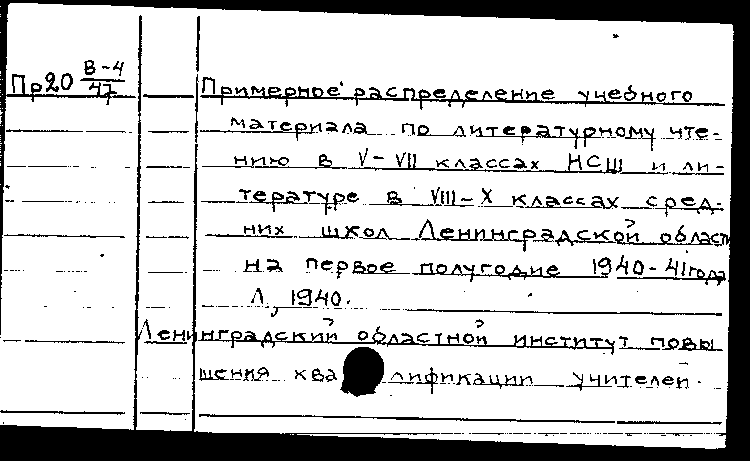 Пр20 В-4/47
Примерное распределение учебного
материала по литературному чте-
нию в V-VII классах НСШ и ли-
тературе в VIII-X классах сред-
них школ Ленинградской области
на первое полугодие 1940-41 года
Л., 1940.
Ленинградский областной институт повы
шения квалификации учителей.